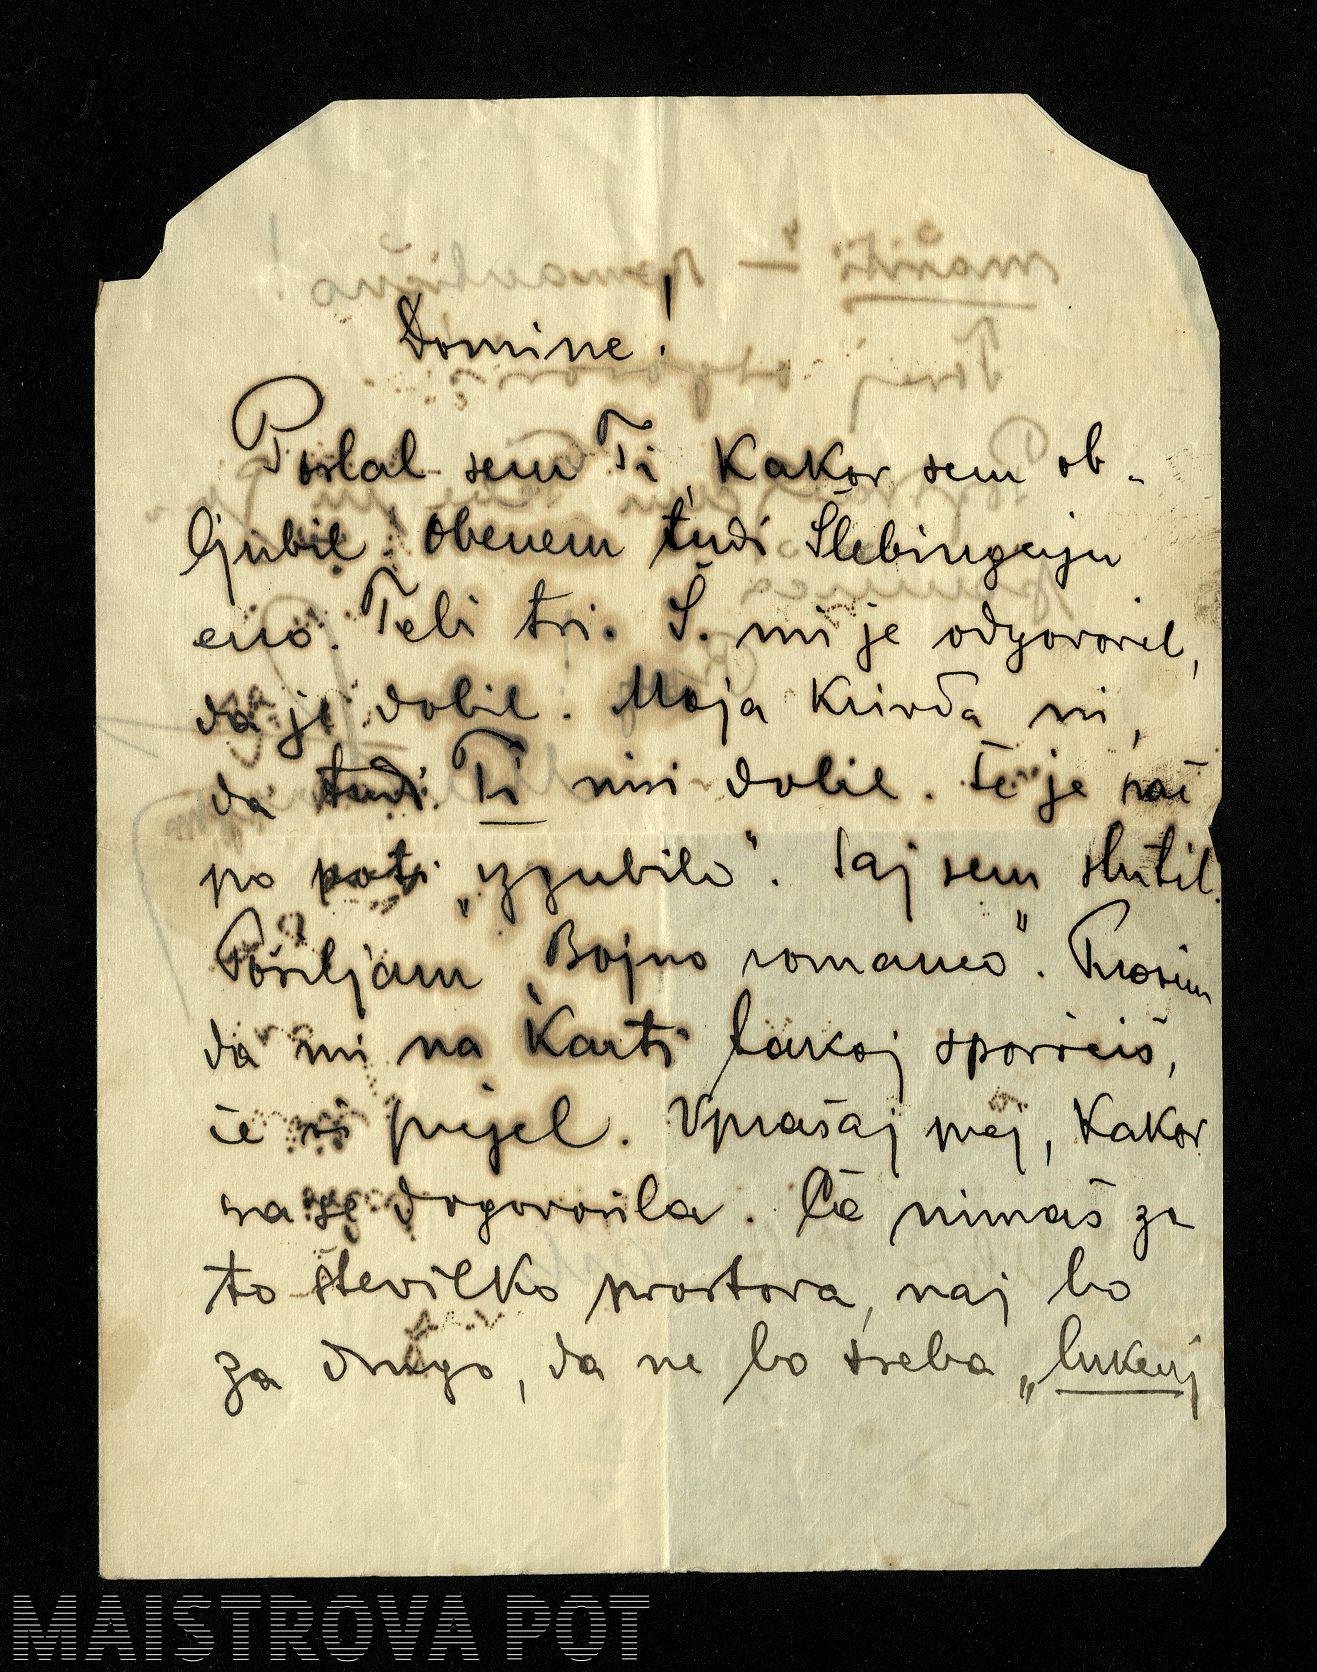 Domine!
Poslal sem Ti, kakor sem ob-
ljubil. Obenem tudi Šlebingerju
eno. Tebi tri. Š. mi je odgovoril,
da je dobil. Moja krivda ni,
da tudi Ti nisi dobil. Če je
po poti „izgubilo". Saj sem slutil.
Pošiljam „Bojno romanco". Prosim
da mi na karti takoj sporočiš,
če si prijel. Vprašaj prej, kakor
sva se dogovorila. Če nimaš za
to številko prostora, naj bo
za drugo, da ne bo treba „luknj
MAISTROVA POT